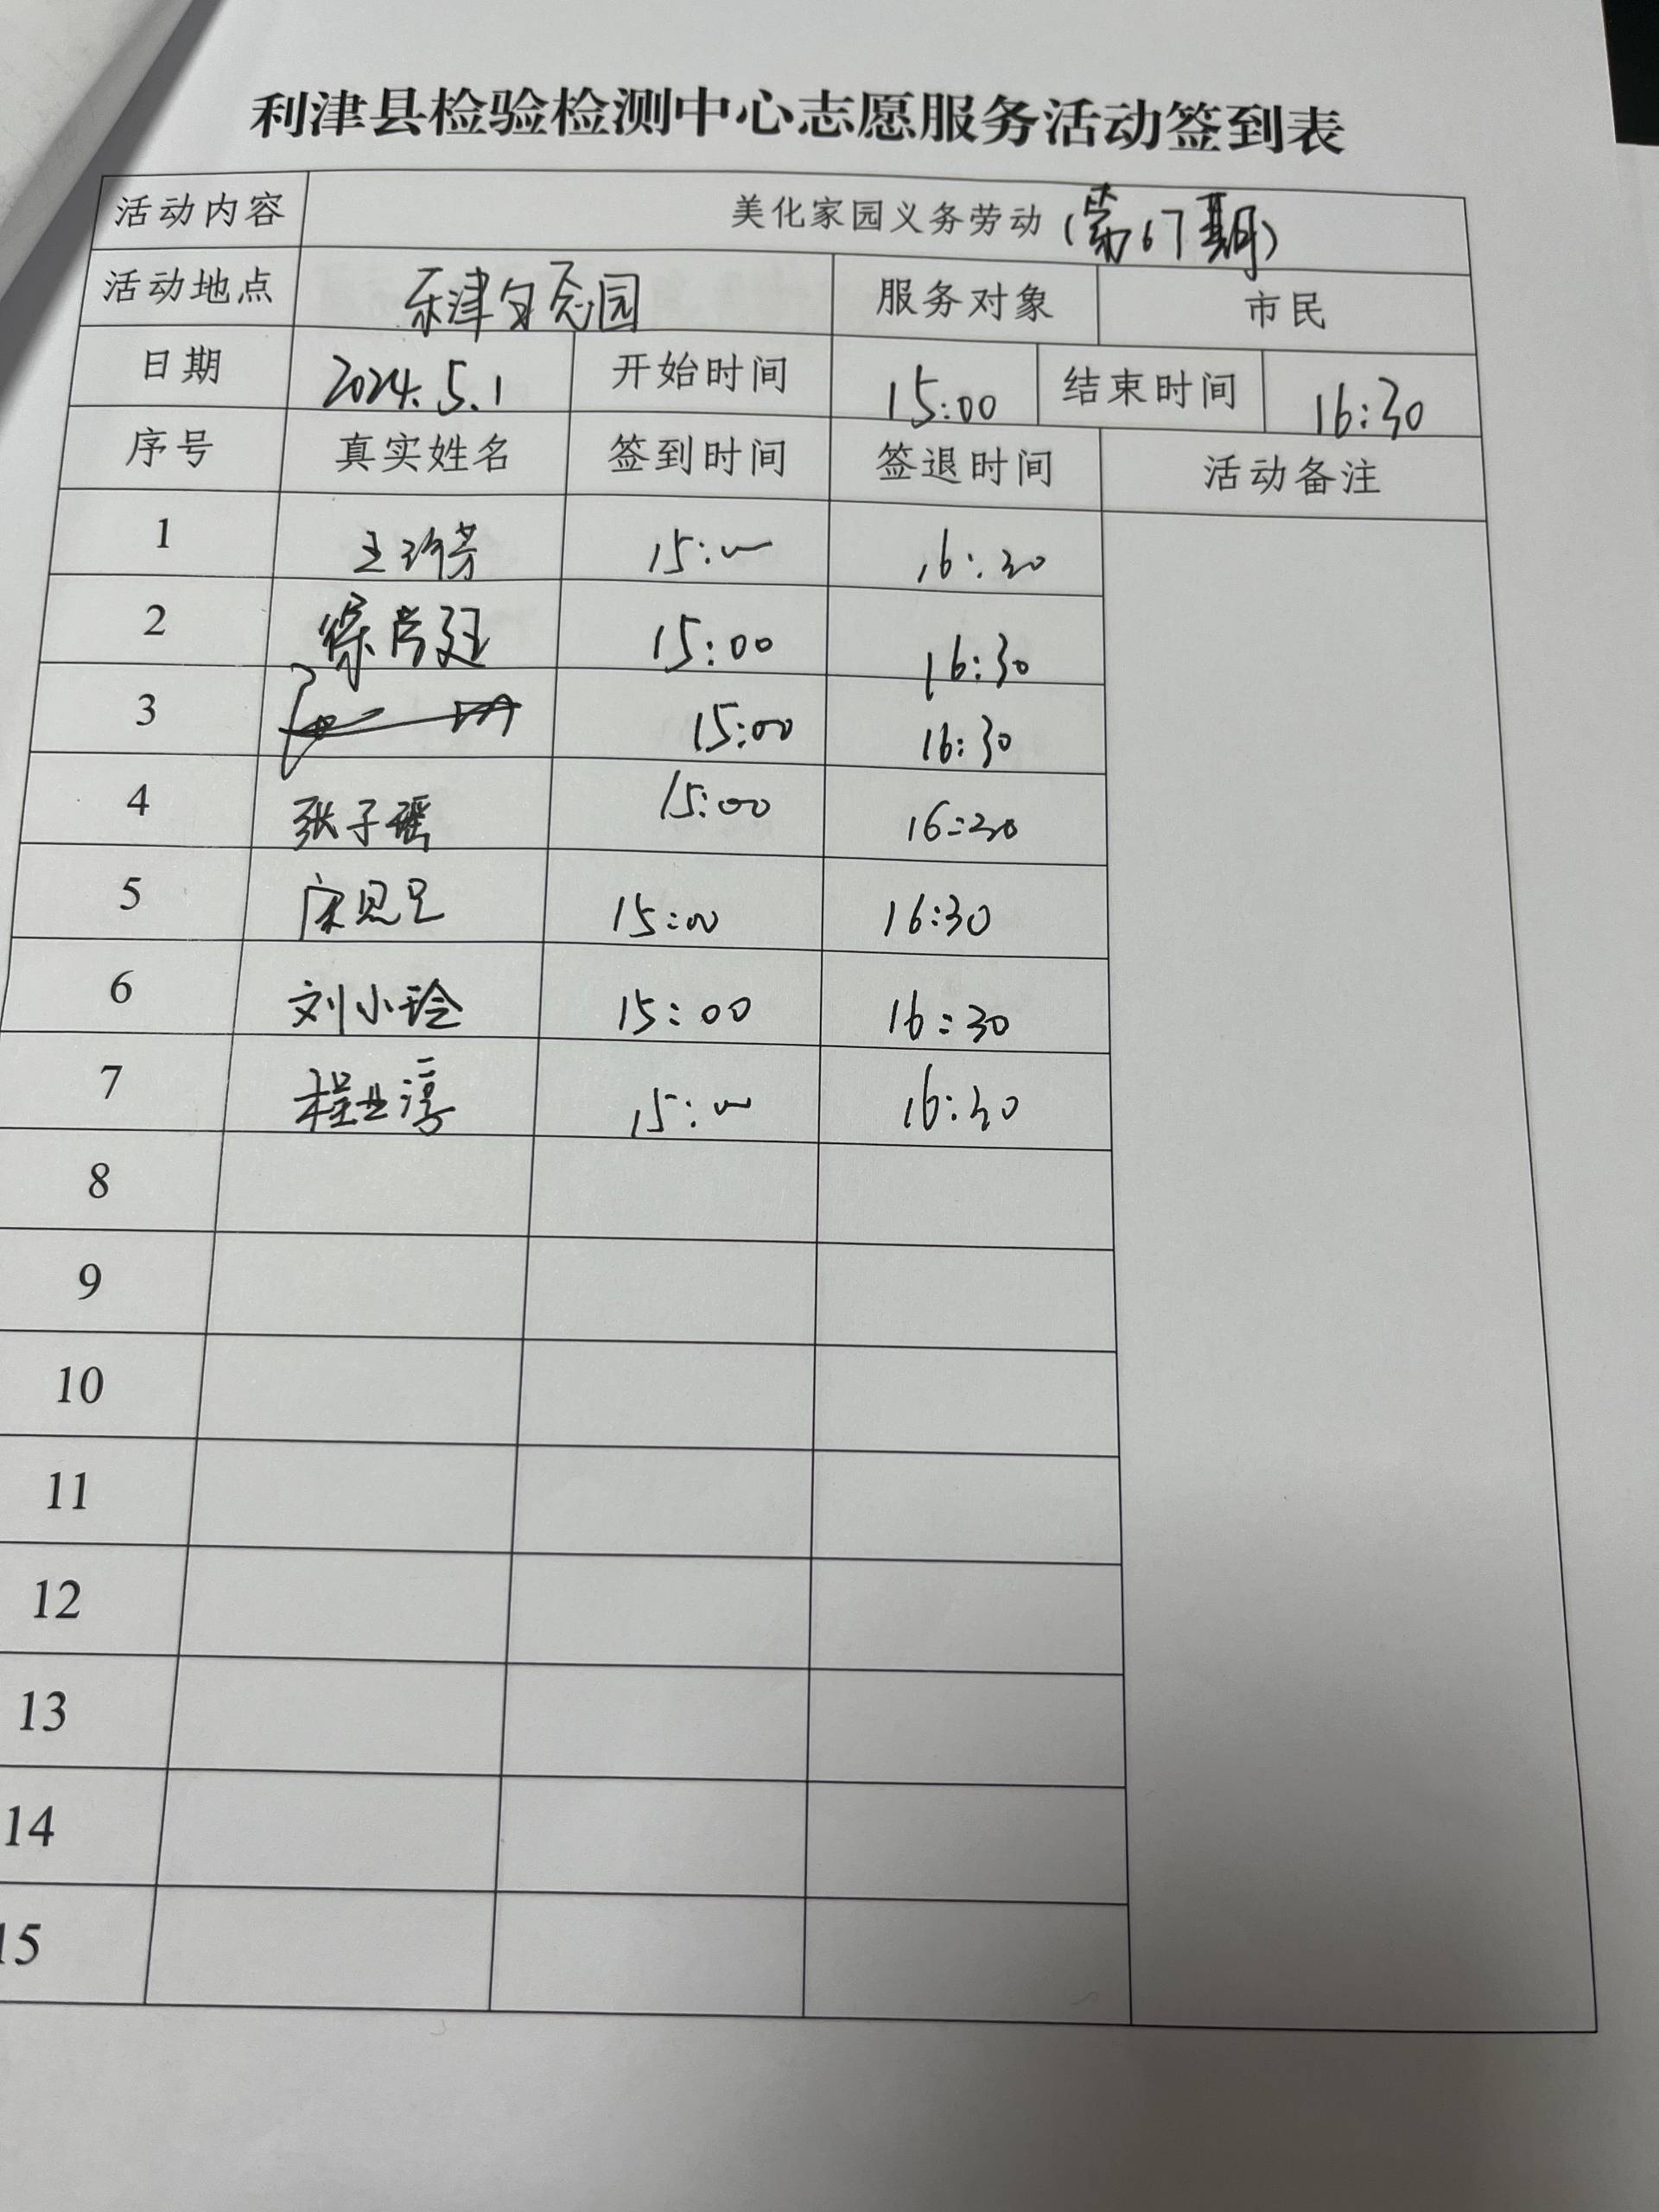 利津县检验检测中心志愿服务活动签到表
活动内容 美化家园义务劳动 (第67期)
活动地点 东津 园 服务对象 市民
日期 2024.5.1 开始时间 15:00 结束时间 16:30
序号 真实姓名 签到时间 签退时间 活动备注
1 王 芳 15:00 16:30
2 15:00 16:30
3 15:00 16:30
4 张子瑶 15:00 16:30
5 15:00 16:30
6 刘小玲 15:00 16:30
7 程 淳 15:00 16:30
8
9
10
11
12
13
14
15